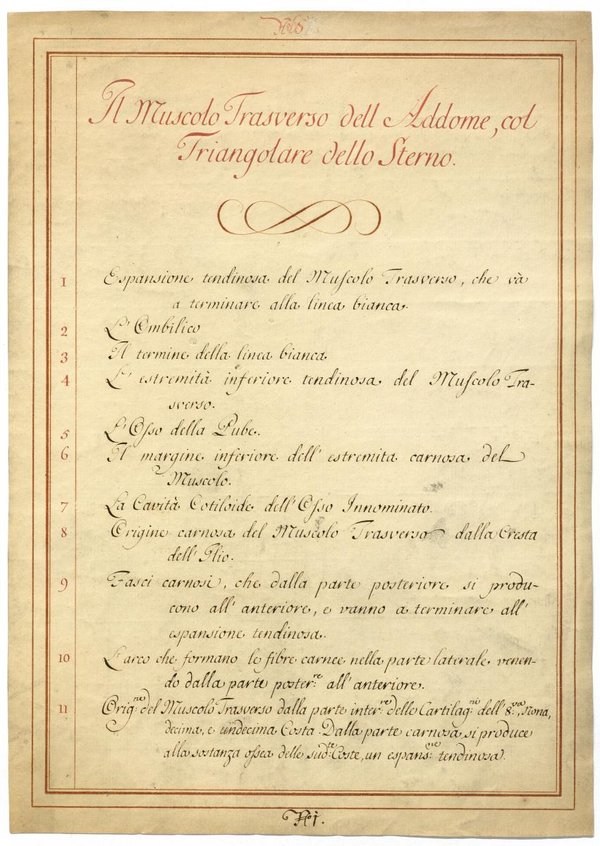 Il Muscolo Trasverso dell Addome, col
Triangolare dello Sterno.
1 Espansione tendinosa del Muſcolo Trasverso, che và
a terminare alla linea bianca.
2 L'Ombilico
3 Il termine della linea bianca
4 L'estremità inferiore tendinosa del Muſcolo Tra-
sverso.
5 L'Oſso della Pube.
6 Il margine inferiore dell'estremita carnosa del
Muscolo.
7 La Cavità Cotiloide dell'Oſso Innominato.
8 Origine carnosa del Muscolo Trasverso dalla Cresta
dell'Ilio.
9 Fasci carnosi, che dalla parte posteriore si produ-
cono all'anteriore, e vanno a terminare all'
espansione tendinosa.
10 L'arco che formano le fibre carnee nella parte laterale venen-
do dalla parte poster.re all'anteriore.
11 Orig.ne del Muscolo Trasverso dalla parte inter.na delle Cartilag.ni dell'8.va, Nona,
decima, e undecima Costa. Dalla parte carnosa si produce
alla sostanza oſsea delle sud.te Coste, un espans.ne tendinosa.